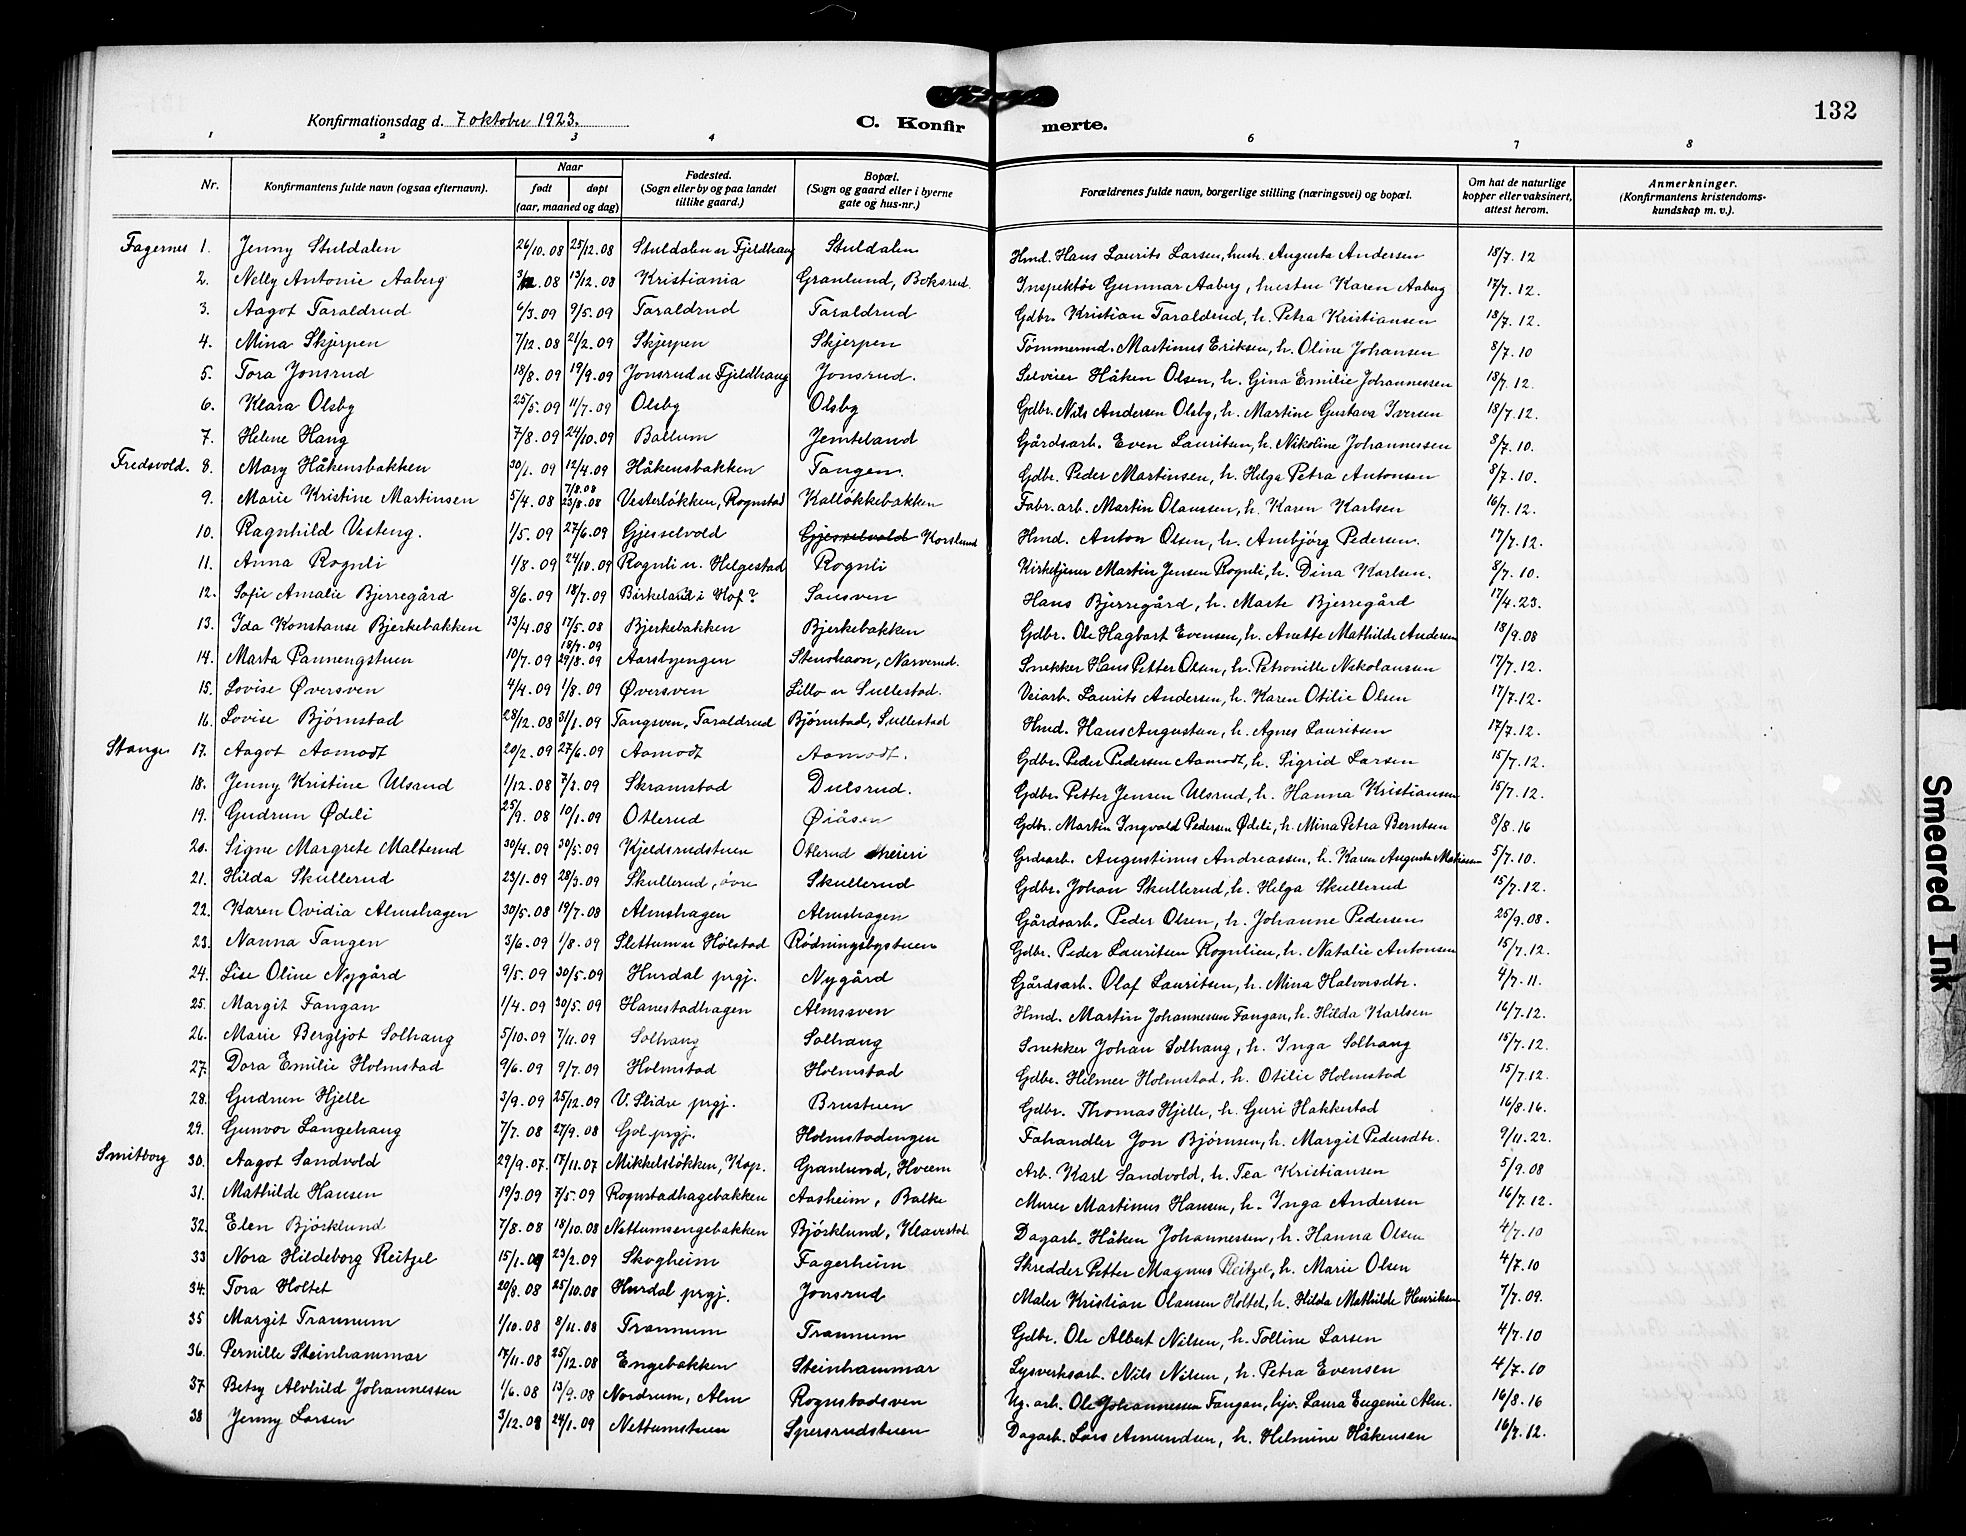 132
Konfirmationsdag d. 7 oktober 1923.
C. Konfirmerte.
1 2 3 4 6 7 8
Nr. Konfirmantens fulde navn (ogsaa efternavn). Naar født døpt (aar, maaned og dag) Fødested. (Sogn eller by og paa landet tillike gaard.) Bopæl. (Sogn og gaard eller i byerne gate og hus-nr.) Forældrenes fulde navn, borgerlige stilling (næringsvei) og bopæl. Om hat de naturlige kopper eller vaksinert, attest herom. Anmerkninger. (Konfirmantens kristendomskundskap m. v.).
Fagernes 1. Jenny Stuldalen 26/10.08 25/12.08 Stuldalen u. Fjeldhaug Stuldalen Hmd. Hans Laurits Larsen, hustr. Augusta Andersen 18/7.12
2. Nelly Antonie Aaberg 08 13/12.08 Kristiania Granlund, Boksrud. Inspektør Gunnar Aaberg, hustru Karen Aaberg 17/7.12.
3. Aagot Taraldrud 6/3.09 9/5.09 Taraldrud Taraldrud Gdbr. Kristian Taraldrud, h. Petra Kristiansen 18/7.12.
4. Mina Skjerpen 7/12.08 21/2.09 Skjerpen Skjerpen Tømmermd. Martinus Eriksen, h. Oline Johansen 8/7.10
5. Tora Jonsrud 18/8.09 19/9.09 Jonsrud u. Fjeldhaug Jonsrud. Selveier Håken Olsen, h. Gina Emilie Johannessen 18/7.12.
6. Klara Olsby 25/5.09 11/7.09 Olsby Olsby Gdbr. Nils Andersen Olsby, h. Martine Gustava Iversen 18/7.12.
7. Helene Haug 7/8.09 24/10.09 Ballum Jemteland Gårdsarb. Even Lauritsen, h. Nikoline Johannessen 8/7.10.
Fredsvold. 8. Mary Håkensbakken 30/1.09 12/4.09 Håkensbakken Tangen. Gdbr. Peder Martinsen, h. Helga Petra Antonsen 8/7.10.
9. Marie Kristine Martinsen 5/4.08 7/8.08 23/8.08 Vesterløkken, Rognstad Kalløkkebakken Fabr. arb. Martin Olaussen, h. Karen Karlsen 16/7.12.
10. Ragnhild Vesteng. 1/5.09 27/6.09 Gjesselvold Gjesselvold Korslund Hmd. Anton Olsen, h. Anbjørg Pedersen. 17/7.12.
11. Anna Rognli 1/8.09 24/10.09 Rognli u. Helgestad Rognli Kirketjener Martin Jensen Rognli, h. Dina Karlsen. 8/7.10.
12. Sofie Amalie Bjerregård 8/6.09 18/7.09 Birkeland i Hof? Sansven Hans Bjerregård, h. Marte Bjerregård 17/4.23.
13. Ida Konstanse Bjerkebakken 13/4.08 17/5.08 Bjerkebakken Bjerkebakken Gdbr. Ole Hagbart Evensen, h. Anette Mathilde Andersen 18/9.08
14. Marta Pannengstuen 10/7.09 18/7.09 29/8.09 Aarsbyengen Stenshaon, Narverud. Snekker Hans Petter Olsen, h. Petronille Nikolausen 17/7.12.
15. Lovise Øversven 4/4.09 1/8.09 Øversven Lillo u. Sullestad. Veiarb. Laurits Andersen, h. Karen Otilie Olsen 17/7.12.
16. Lovise Bjørnstad 28/12.08 31/1.09 Tangsven, Taraldrud Bjørnstad, Sullestad Hmd. Hans Augustun, h. Agnes Lauritsen 17/7.12.
Stange 17. Aagot Aamodt 20/2.09 27/6.09 Aamodt Aamodt. Gdbr. Peder Pedersen Aamodt, h. Sigrid Larsen 15/7.12.
18. Jenny Kristine Ulsrud 1/12.08 7/2.09 Skramstad Dulsrud. Gdbr. Petter Jensen Ulsrud, h. Hanna Kristiansen 15/7.12.
19. Gudrun Ødeli 25/9.08 10/1.09 Otlerud Øiåsen Gdbr. Martin Ingvald Pedersen Ødeli, h. Mina Petra Berntsen 8/8.16
20. Signe Margrete Malterud 30/4.09 30/5.09 Kjeldsrudstuen Otlerud meieri Grdsarb. Augustinus Andreassen, h. Karen Augusta Matiasen 5/7.10.
21. Hilda Skullerud 23/1.09 28/3.09 Skullerud, øvre Skullerud Gdbr. Johan Skullerud, h. Helga Skullerud 15/7.12.
22. Karen Ovidia Almshagen 30/5.08 19/7.08 Almshagen Almshagen Gårdsarb. Peder Olsen, h. Johanne Pedersen 25/9.08.
23. Nanna Tangen 3/6.09 1/8.09 Slettum u. Hølstad Rødningsbystuen Gdbr. Peder Lauritsen Rognlien, h. Natalie Antonsen 15/7.12.
24. Lise Oline Nygård 9/5.09 30/5.09 Hurdal prgj. Nygård Gårdsarb. Olaf Lauritsen, h. Mina Halvorsdtr. 4/7.11.
25. Margit Fangan 1/4.09 30/5.09 Hanestadhagen Almssven Hmd. Martin Johannesen Fangan, h. Hilda Karlsen 16/7.12.
26. Marie Bergljot Solhaug 5/10.09 7/11.09 Solhaug Solhaug Snekker Johan Solhaug, h. Inga Solhaug 15/7.12.
27. Dora Emilie Holmstad 9/6.09 9/7.09 Holmstad Holmstad Gdbr. Hilmer Holmstad, h. Otilie Holmstad 15/7.12.
28. Gudrun Hjelle 3/9.09 25/12.09 V. Slidre prgj. Brustuen Gdbr. Thomas Hjelle, h. Guri Hakkestad 16/8.16.
29. Gunvor Langehaug 7/7.08 27/9.08 Gol prgj. Holmstadengen Fahandler Jon Bjørnsen, h. Margit Pedersdtr. 9/11.22.
Smitborg 30. Aagot Sandvold 29/9.07. 17/11.07 Mikkelsløkken, Kap. Granlund, Hveem Arb. Karl Sandvold, h. Tea Kristiansen 5/9.08
31. Mathilde Hansen 19/3.09 7/5.09 Rognstadhagebakken Aasheim, Balke Murer Martinus Hansen, h. Inga Andersen 16/7.12.
32. Elen Bjørklund 7/8.08 18/10.08 Nettumsengebakken Bjørklund, Klavestad. Dagarb. Håken Johannessen, h. Hanna Olsen 4/7.10
33 Nora Hildeborg Reitzel 15/1.09 23/2.09 Skogheim Fagerheim Skredder Petter Magnus Reitzel, h. Marie Olsen 4/7.10
34. Tora Holtet 20/8.08 25/10.08 Hurdal prgj. Jonsrud Maler Kristian Olausen Holtet, h. Hilda Mathilde Henriksen 7/7.09.
35 Margit Trannum 1/10.08 8/11.08 Trannum Trannum Gdbr. Ole Albert Nilsen, h. Tolline Larsen 4/7.10
36. Pernille Steinhammar 17/11.08 25/12.08 Engebakken Steinhammar Lysverksarb. Nils Nilsen, h. Petra Evensen 4/7.10
37 Betsy Alvhild Johannessen 1/6.08 13/9.08 Nordrum, Alm Rognstadsven Ug. arb. Ole Johannessen Fangan, hjv. Laura Eugenie Alm. 16/8.16
38 Jenny Larsen 3/12.08 24/1.09 Nettumstuen Spersrudstuen Dagarb. Lars Amundsen, h. Helmine Håkensen 16/7.12.
Smeared Ink